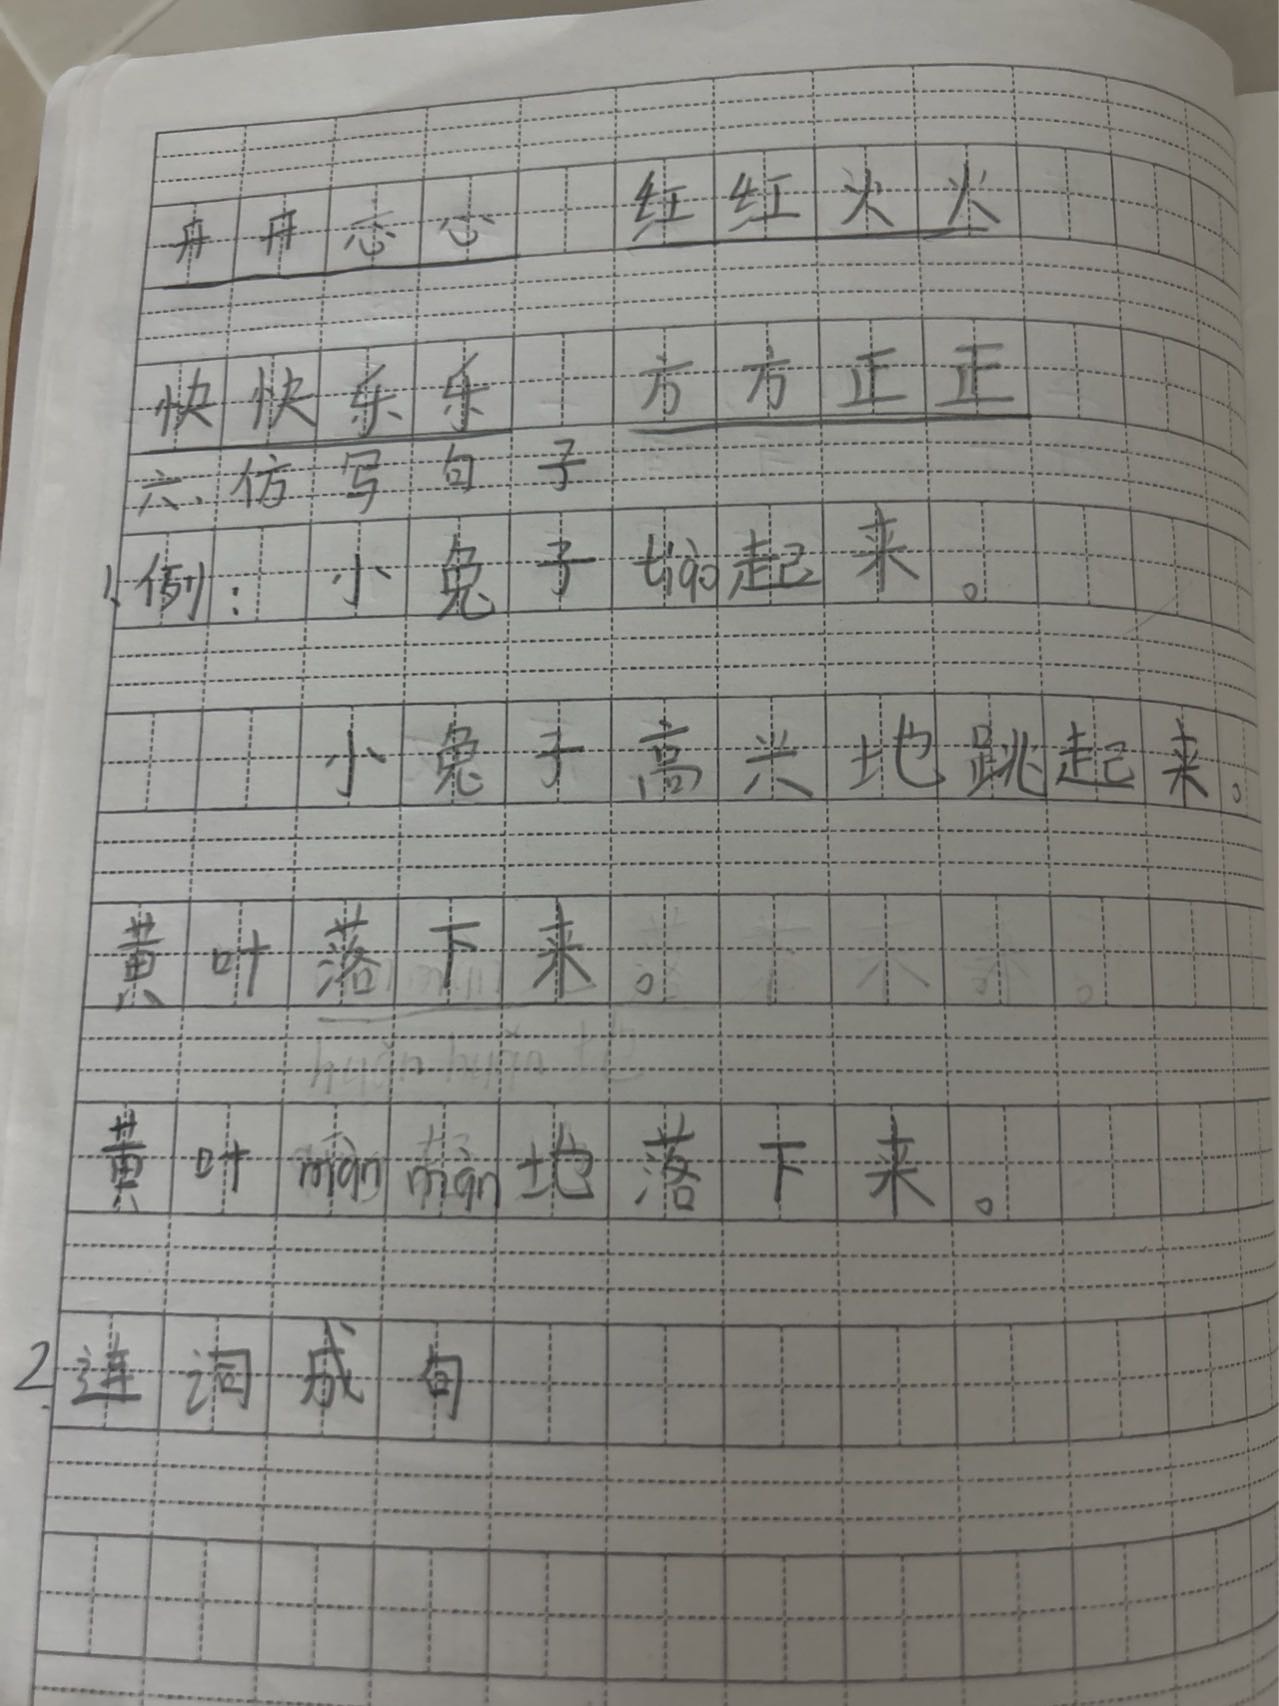 冉冉忑心 红红火火
快快乐乐 方方正正
六、仿写句子
1.例: 小兔子tiào起来。
小兔子高兴地跳起来。
黄叶落下来。
黄叶màn màn地落下来。
2.连词成句